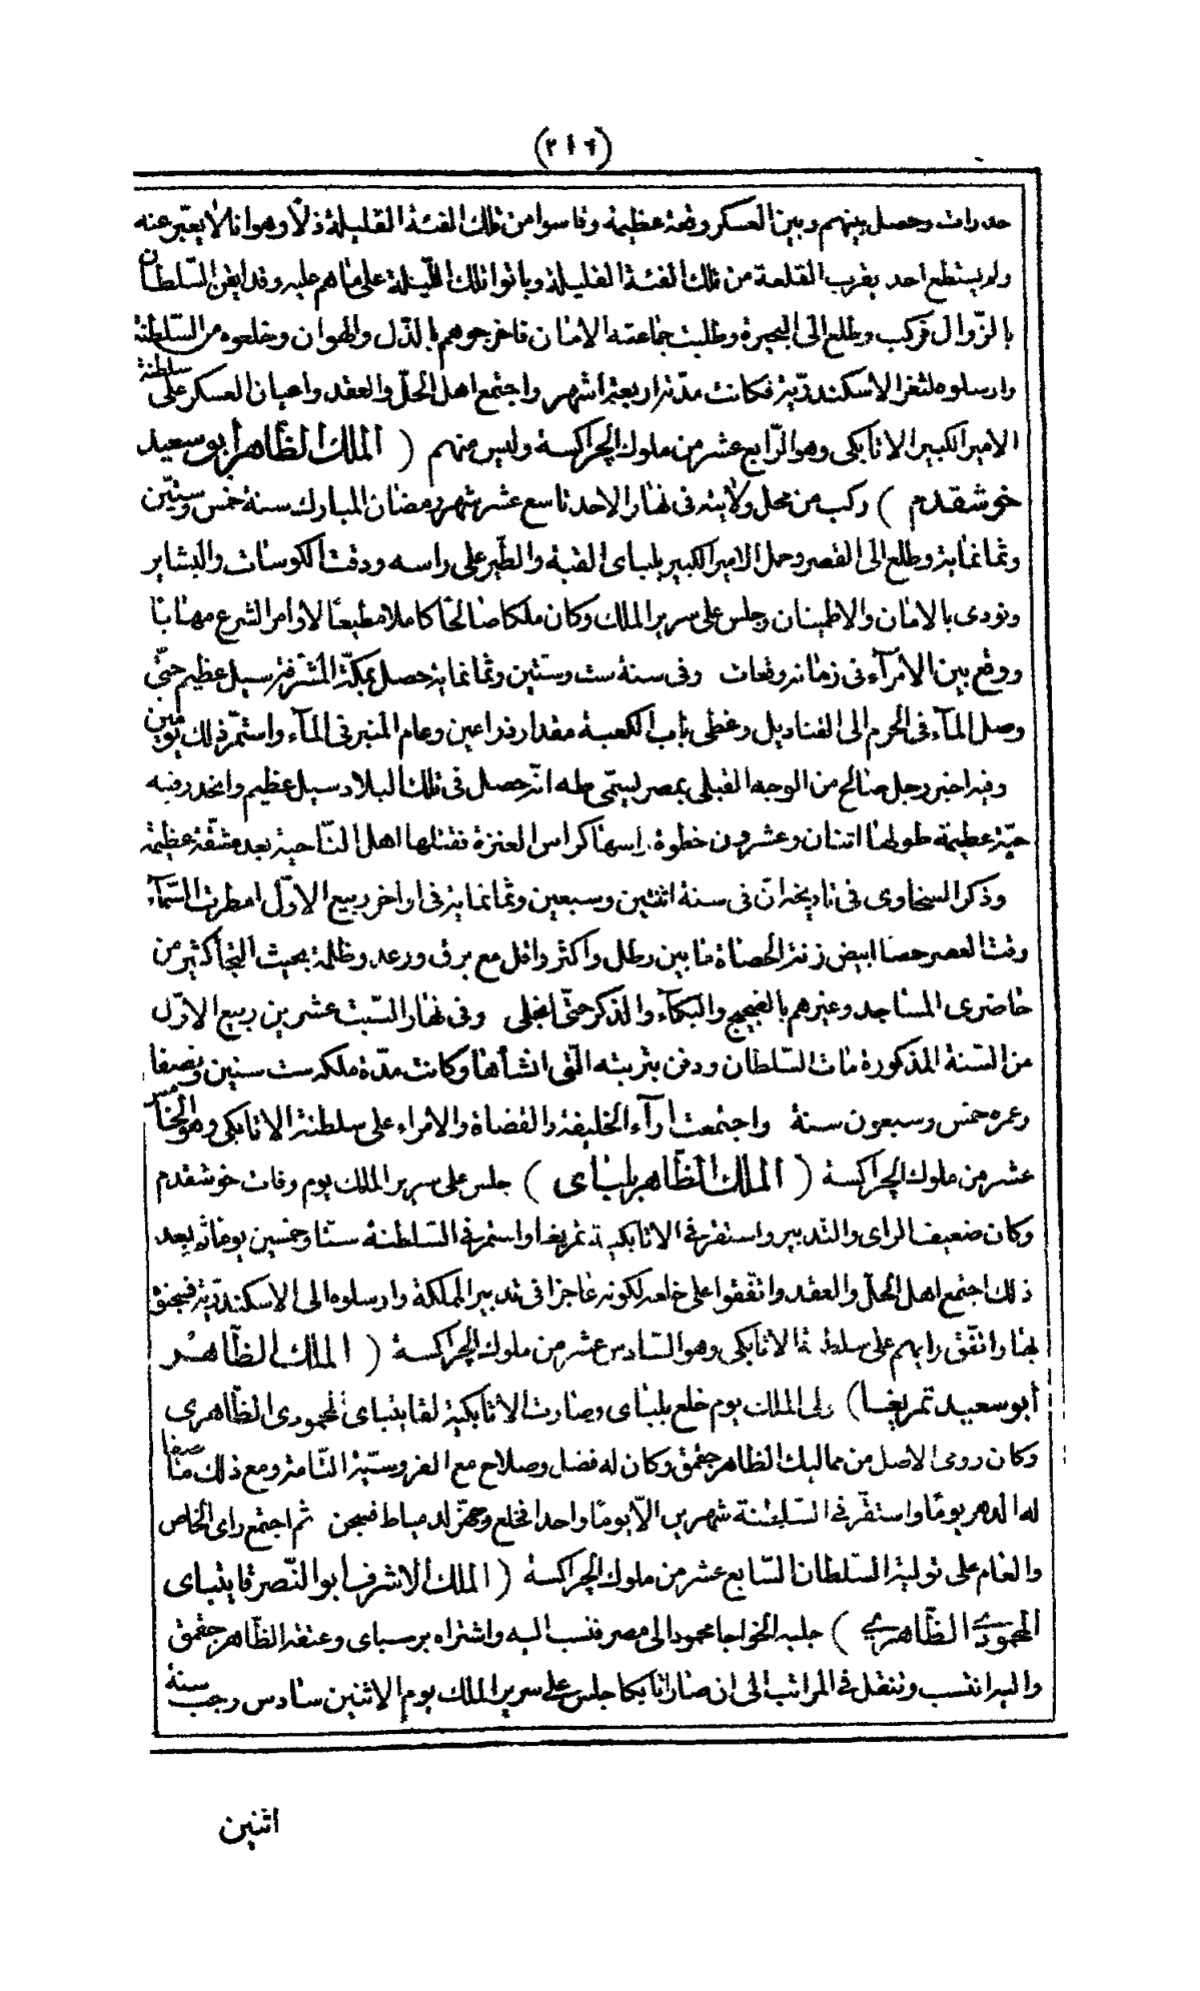 (٢١٦)
حدرات وحصل بينهم وبين العسكر وقعة عظيمة وقاسوا من تلك الفئة القليلة ذلا وهوانا لا يعبّر عنه
ولم يستطع احد يقرب القلعة من تلك الفئة القليلة وباتوا تلك الليلة على ما هم عليه وقد ايقن السّلطان
بالزّوال فركب وطلع الى البحيرة وطلبت جماعته الامان فاخرجوهم بالذّل والهوان وخلعوه من السّلطنة
وارسلوه لثغر الاسكندريّة فكانت مدّته اربعة اشهر واجتمع اهل الحلّ والعقد واعيان العسكر على سلطنة
الامير الكبير الاتابكى وهو الرّابع عشر من ملوك الجراكسة وليس منهم ( الملك الظّاهر أبو سعيد
خوشقدم ) ركب من محل ولايته فى نهار الاحد تاسع عشر شهر رمضان المبارك سنة خمس وستّين
وثمانماية وطلع الى القصر وحمل الامير الكبير يلباى القبة والطّير على راسه ودقت الكوسات والبشاير
ونودى بالامان والاطمينان وجلس على سرير الملك وكان ملكا صالحًا كاملا مطيعًا لاوامر الشرع مهابًا
ووقع بين الامرآء فى زمانه وقعات وفى سنة ست وستّين وثمانماية حصل بمكّة المشرّفة سيل عظيم حتّى
وصل المآء فى الحرم الى القناديل وغطى باب الكعبة مقدار ذراعين وعام المنبر فى المآء واستمرّ ذلك يومين
وفيه اخبر رجل صالح من الوجه القبلى بمصر يسمّى طه انّه حصل فى تلك البلاد سيل عظيم وانحدر فيه
حيّة عظيمة طولها اثنان وعشرون خطوة راسها كراس العنزة فقتلها اهل النّاحية بعد مشقّة عظيمة
وذكر السخاوى فى تاريخه انّ فى سنة اثنتين وسبعين وثمانماية فى اواخر ربيع الاوّل امطرت السّمآء
وقت العصر حصا ابيض زنة الحصاة ما بين رطل واكثر واقل مع برق ورعد وظلمة بحيث التجأ كثير من
حاضرى المساجد وغيرهم بالضجيج والبكآء والذكر حتّى انجلى وفى نهار السّبت عشرين ربيع الاوّل
من السّنة المذكورة مات السّلطان ودفن بتربته الّتى انشأها وكانت مدّة ملكه ست سنين ونصفا
وعمره خمس وسبعون سنة واجتمعت ارآء الخليفة والقضاة والامراء على سلطنة الاتابكى وهو الخامس
عشر من ملوك الجراكسة ( الملك الظّاهر يلباى ) جلس على سرير الملك يوم وفات خوشقدم
وكان ضعيف الراى والتدبير واستقر فى الاتابكية تمربغا واستمر فى السّلطنة ستّا وخمسين يوما ثم بعد
ذلك اجتمع اهل الحلّ والعقد واتّفقوا على خلعه لكونه عاجزا فى تدبير المملكة وارسلوه الى الاسكندريّة فسجن
بها واتّفق رايهم على سلطنة الاتابكى وهو السّادس عشر من ملوك الجراكسة ( الملك الظّاهر
أبو سعيد تمربغا ) ولى الملك يوم خلع يلباى وصارت الاتابكية لقايتباى المحمودى الظّاهرى
وكان رومى الاصل من مماليك الظاهر جقمق وكان له فضل وصلاح مع الفروسيّة التّامة ومع ذلك ما صفا
له الدهر يومًا واستقرّ فى السّلطنة شهرين الّا يومًا واحدا فخلع وجهّز لدمياط فسجن ثم اجتمع راى الخاص
والعام على تولية السّلطان السّابع عشر من ملوك الجراكسة ( الملك الاشرف ابو النّصر قايتباى
المحموديّ الظّاهريّ ) جلبه الخواجا محمود الى مصر فنسب اليه واشتراه برسباى وعتقه الظّاهر جقمق
واليه انتسب وتنقل فى المراتب الى ان صار اتابكا جلس على سرير الملك يوم الاثنين سادس رجب سنة
اثنين